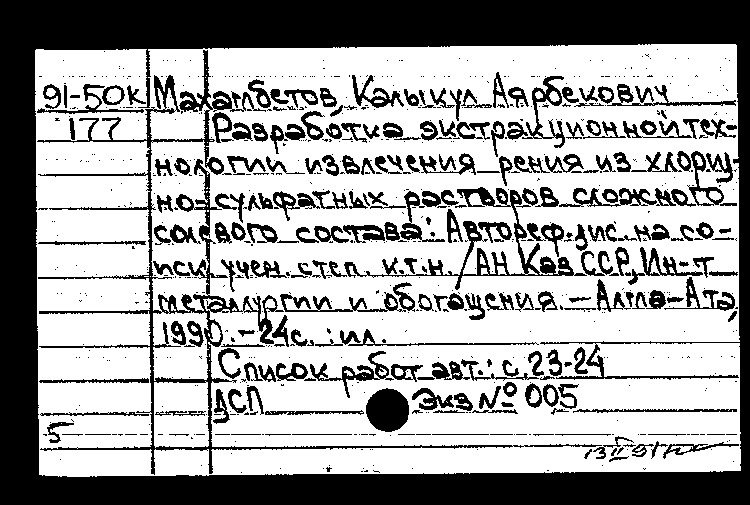 91-50к Махамбетов, Калыкул Аярбекович
177 Разработка экстракционной тех-
нологии извлечения рения из хлорид-
но-сульфатных растворов сложного
солевого состава: Автореф. дис. на со-
иск. учен. степ. к.т.н. / АН Каз ССР, Ин-т
металлургии и обогащения. — Алма-Ата,
1990. - 24с. : ил.
Список работ авт.: с. 23-24
ДСП Экз № 005
5
13 II 91